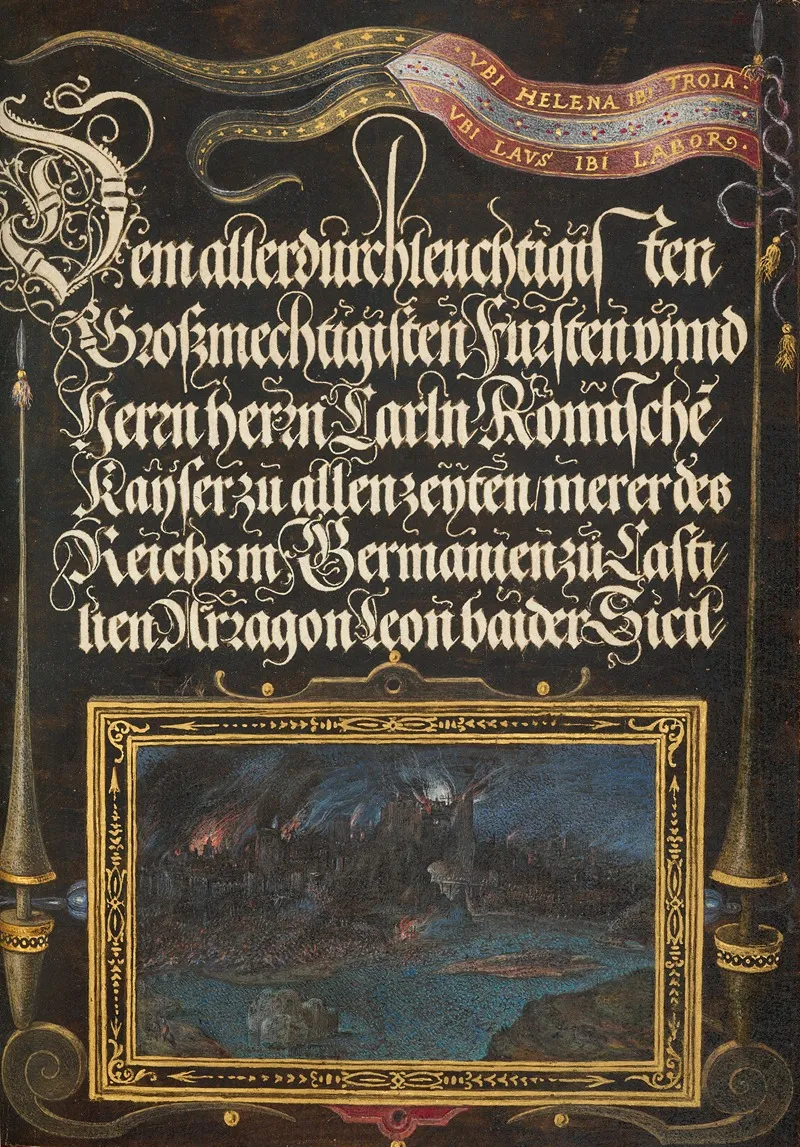 VBI HELENA IBI TROIA.
VBI LAVS IBI LABOR.
Dem allerdurchleuchtigisten
Großmechtigisten Fursten vnnd
Herrn herrn Carln Römische̅
Kayser zu allen zeyten / merer des
Reichs in Germanien zu Casti
lien Arragon Leon baider Sicil